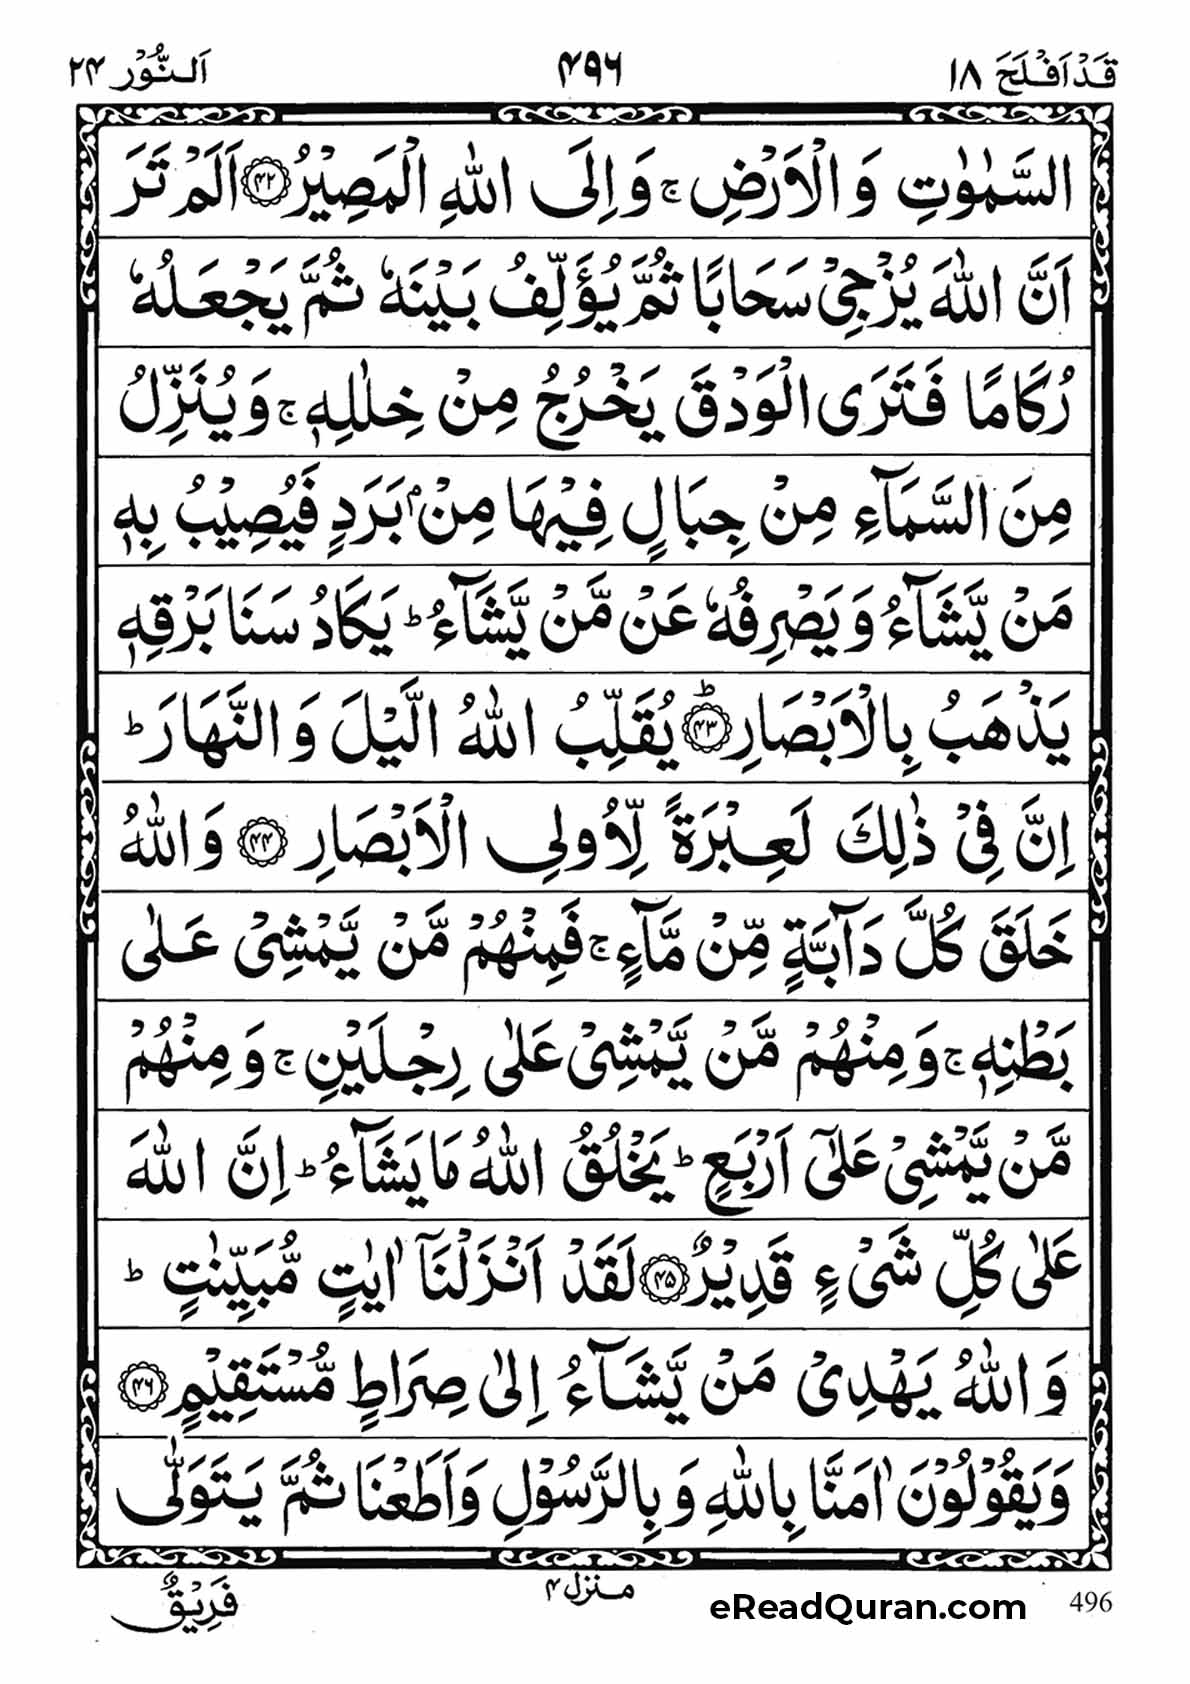 قَدۡ اَفۡلَحَ ۱۸
۴۹۶
اَلنُّوۡر ۲۴
السَّمٰوٰتِ وَ الۡاَرۡضِ ۚ وَ اِلَى اللّٰهِ الۡمَصِيۡرُ ﴿۴۲﴾ اَلَمۡ تَرَ
اَنَّ اللّٰهَ يُزۡجِىۡ سَحَابًا ثُمَّ يُؤَلِّفُ بَيۡنَهٗ ثُمَّ يَجۡعَلُهٗ
رُكَامًا فَتَرَى الۡوَدۡقَ يَخۡرُجُ مِنۡ خِلٰلِهٖ ۚ وَ يُنَزِّلُ
مِنَ السَّمَآءِ مِنۡ جِبَالٍ فِيۡهَا مِنۡۢ بَرَدٍ فَيُصِيۡبُ بِهٖ
مَنۡ يَّشَآءُ وَ يَصۡرِفُهٗ عَنۡ مَّنۡ يَّشَآءُ ؕ يَكَادُ سَنَا بَرۡقِهٖ
يَذۡهَبُ بِالۡاَبۡصَارِ ﴿۴۳﴾ؕ يُقَلِّبُ اللّٰهُ الَّيۡلَ وَ النَّهَارَ ؕ
اِنَّ فِىۡ ذٰلِكَ لَعِبۡرَةً لِّاُولِى الۡاَبۡصَارِ ﴿۴۴﴾ وَ اللّٰهُ
خَلَقَ كُلَّ دَآبَّةٍ مِّنۡ مَّآءٍ ۚ فَمِنۡهُمۡ مَّنۡ يَّمۡشِىۡ عَلٰى
بَطۡنِهٖ ۚ وَ مِنۡهُمۡ مَّنۡ يَّمۡشِىۡ عَلٰى رِجۡلَيۡنِ ۚ وَ مِنۡهُمۡ
مَّنۡ يَّمۡشِىۡ عَلٰٓى اَرۡبَعٍ ؕ يَخۡلُقُ اللّٰهُ مَا يَشَآءُ ؕ اِنَّ اللّٰهَ
عَلٰى كُلِّ شَىۡءٍ قَدِيۡرٌ ﴿۴۵﴾ لَقَدۡ اَنۡزَلۡنَاۤ اٰيٰتٍ مُّبَيِّنٰتٍ ؕ
وَ اللّٰهُ يَهۡدِىۡ مَنۡ يَّشَآءُ اِلٰى صِرَاطٍ مُّسۡتَقِيۡمٍ ﴿۴۶﴾
وَ يَقُوۡلُوۡنَ اٰمَنَّا بِاللّٰهِ وَ بِالرَّسُوۡلِ وَ اَطَعۡنَا ثُمَّ يَتَوَلّٰى
فَرِيۡقٌ
منزل ۴
eReadQuran.com
496